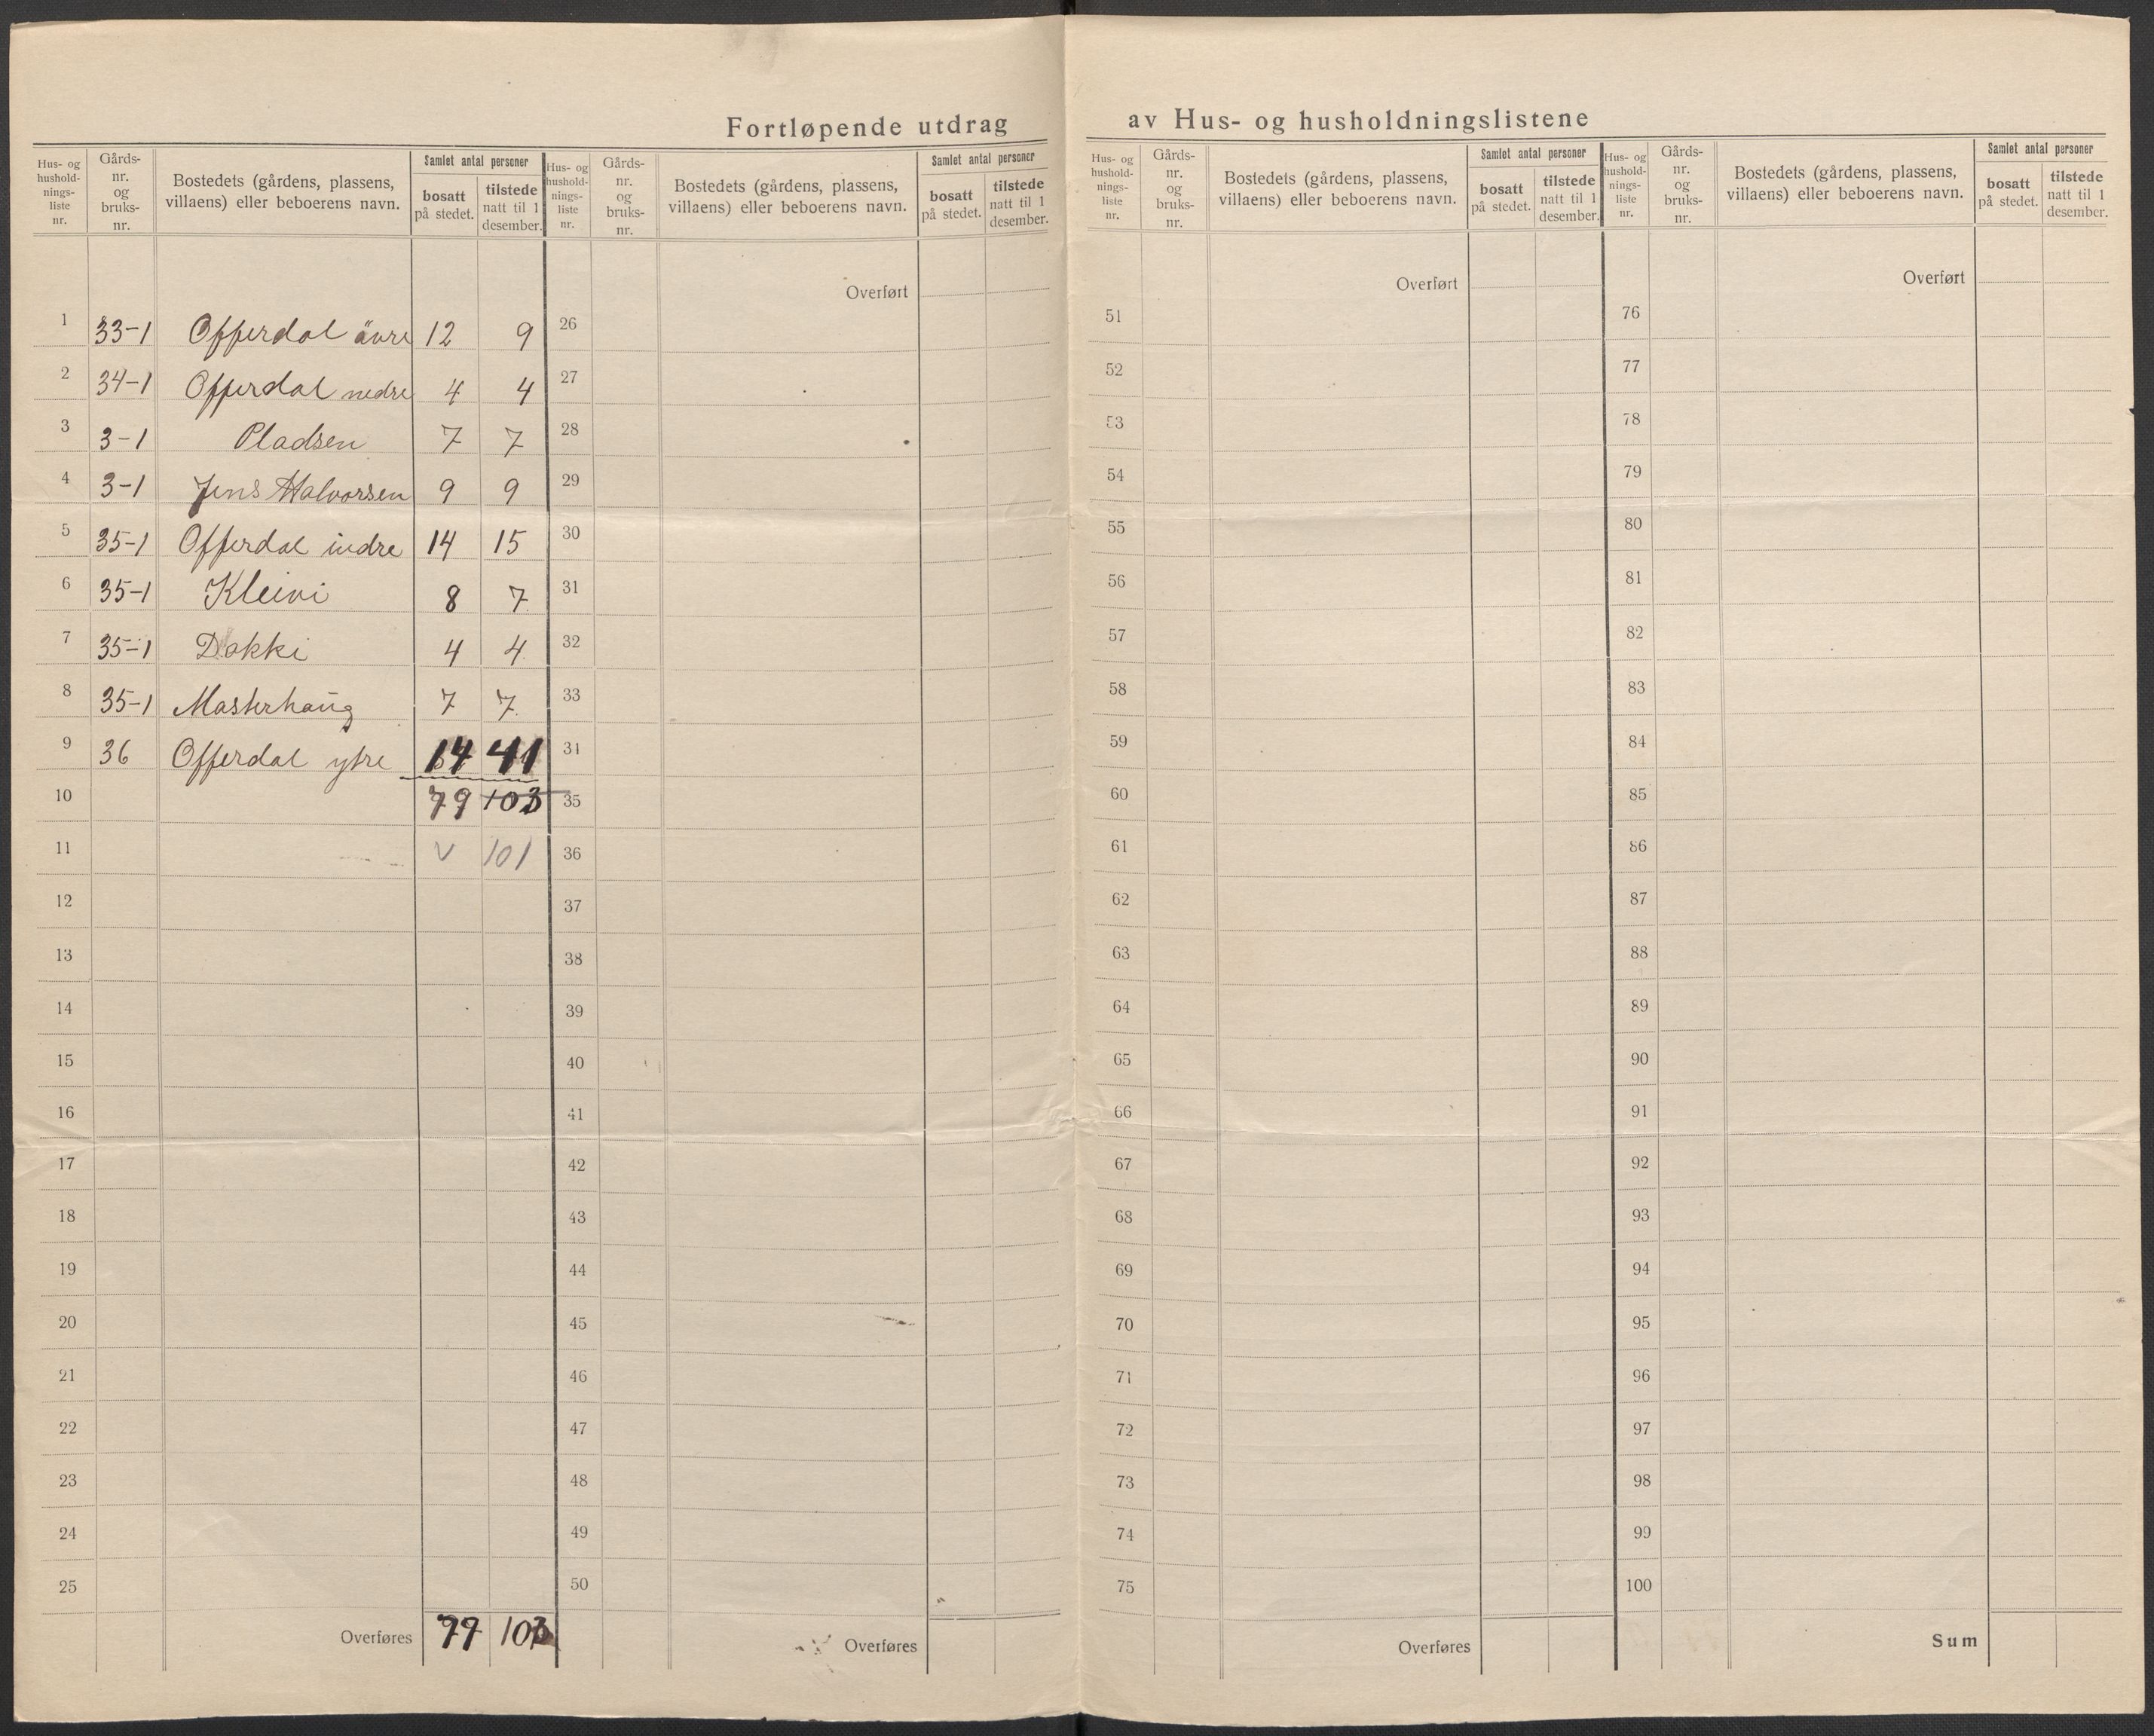 Fortløpende utdrag av Hus- og husholdningslistene
Hus- og hushold-nings-liste nr. Gårds-nr. og bruks-nr. Bostedets (gårdens, plassens, villaens) eller beboerens navn. Samlet antal personer bosatt på stedet. tilstede natt til 1 desember.
1 33-1 Offerdal övre 12 9
2 34-1 Offerdal nedre 4 4
3 3-1 Pladsen 7 7
4 3-1 Jens Halvorsen 9 9
5 35-1 Offerdal indre 14 15
6 35-1 Kleivi 8 7
7 35-1 Dokki 4 4
8 35-1 Masterhaug 7 7
9 36 Offerdal ytre 14 41
10 79 103
11 101
12
13
14
15
16
17
18
19
20
21
22
23
24
25
Overføres 79 103
Hus- og hushold-nings-liste nr. Gårds-nr. og bruks-nr. Bostedets (gårdens, plassens, villaens) eller beboerens navn. Samlet antal personer bosatt på stedet. tilstede natt til 1 desember.
Overført
26
27
28
29
30
31
32
33
31
35
36
37
38
39
40
41
42
43
44
45
46
47
48
49
50
Overføres
Hus- og hushold-nings-liste nr. Gårds-nr. og bruks-nr. Bostedets (gårdens, plassens, villaens) eller beboerens navn. Samlet antal personer bosatt på stedet. tilstede natt til 1 desember.
Overført
51
52
53
54
55
56
57
58
59
60
61
62
63
64
65
66
67
68
69
70
71
72
73
74
75
Overføres
Hus- og hushold-nings-liste nr. Gårds-nr. og bruks-nr. Bostedets (gårdens, plassens, villaens) eller beboerens navn. Samlet antal personer bosatt på stedet. tilstede natt til 1 desember.
Overført
76
77
78
79
80
81
82
83
84
85
86
87
88
89
90
91
92
93
94
95
96
97
98
99
100
Sum